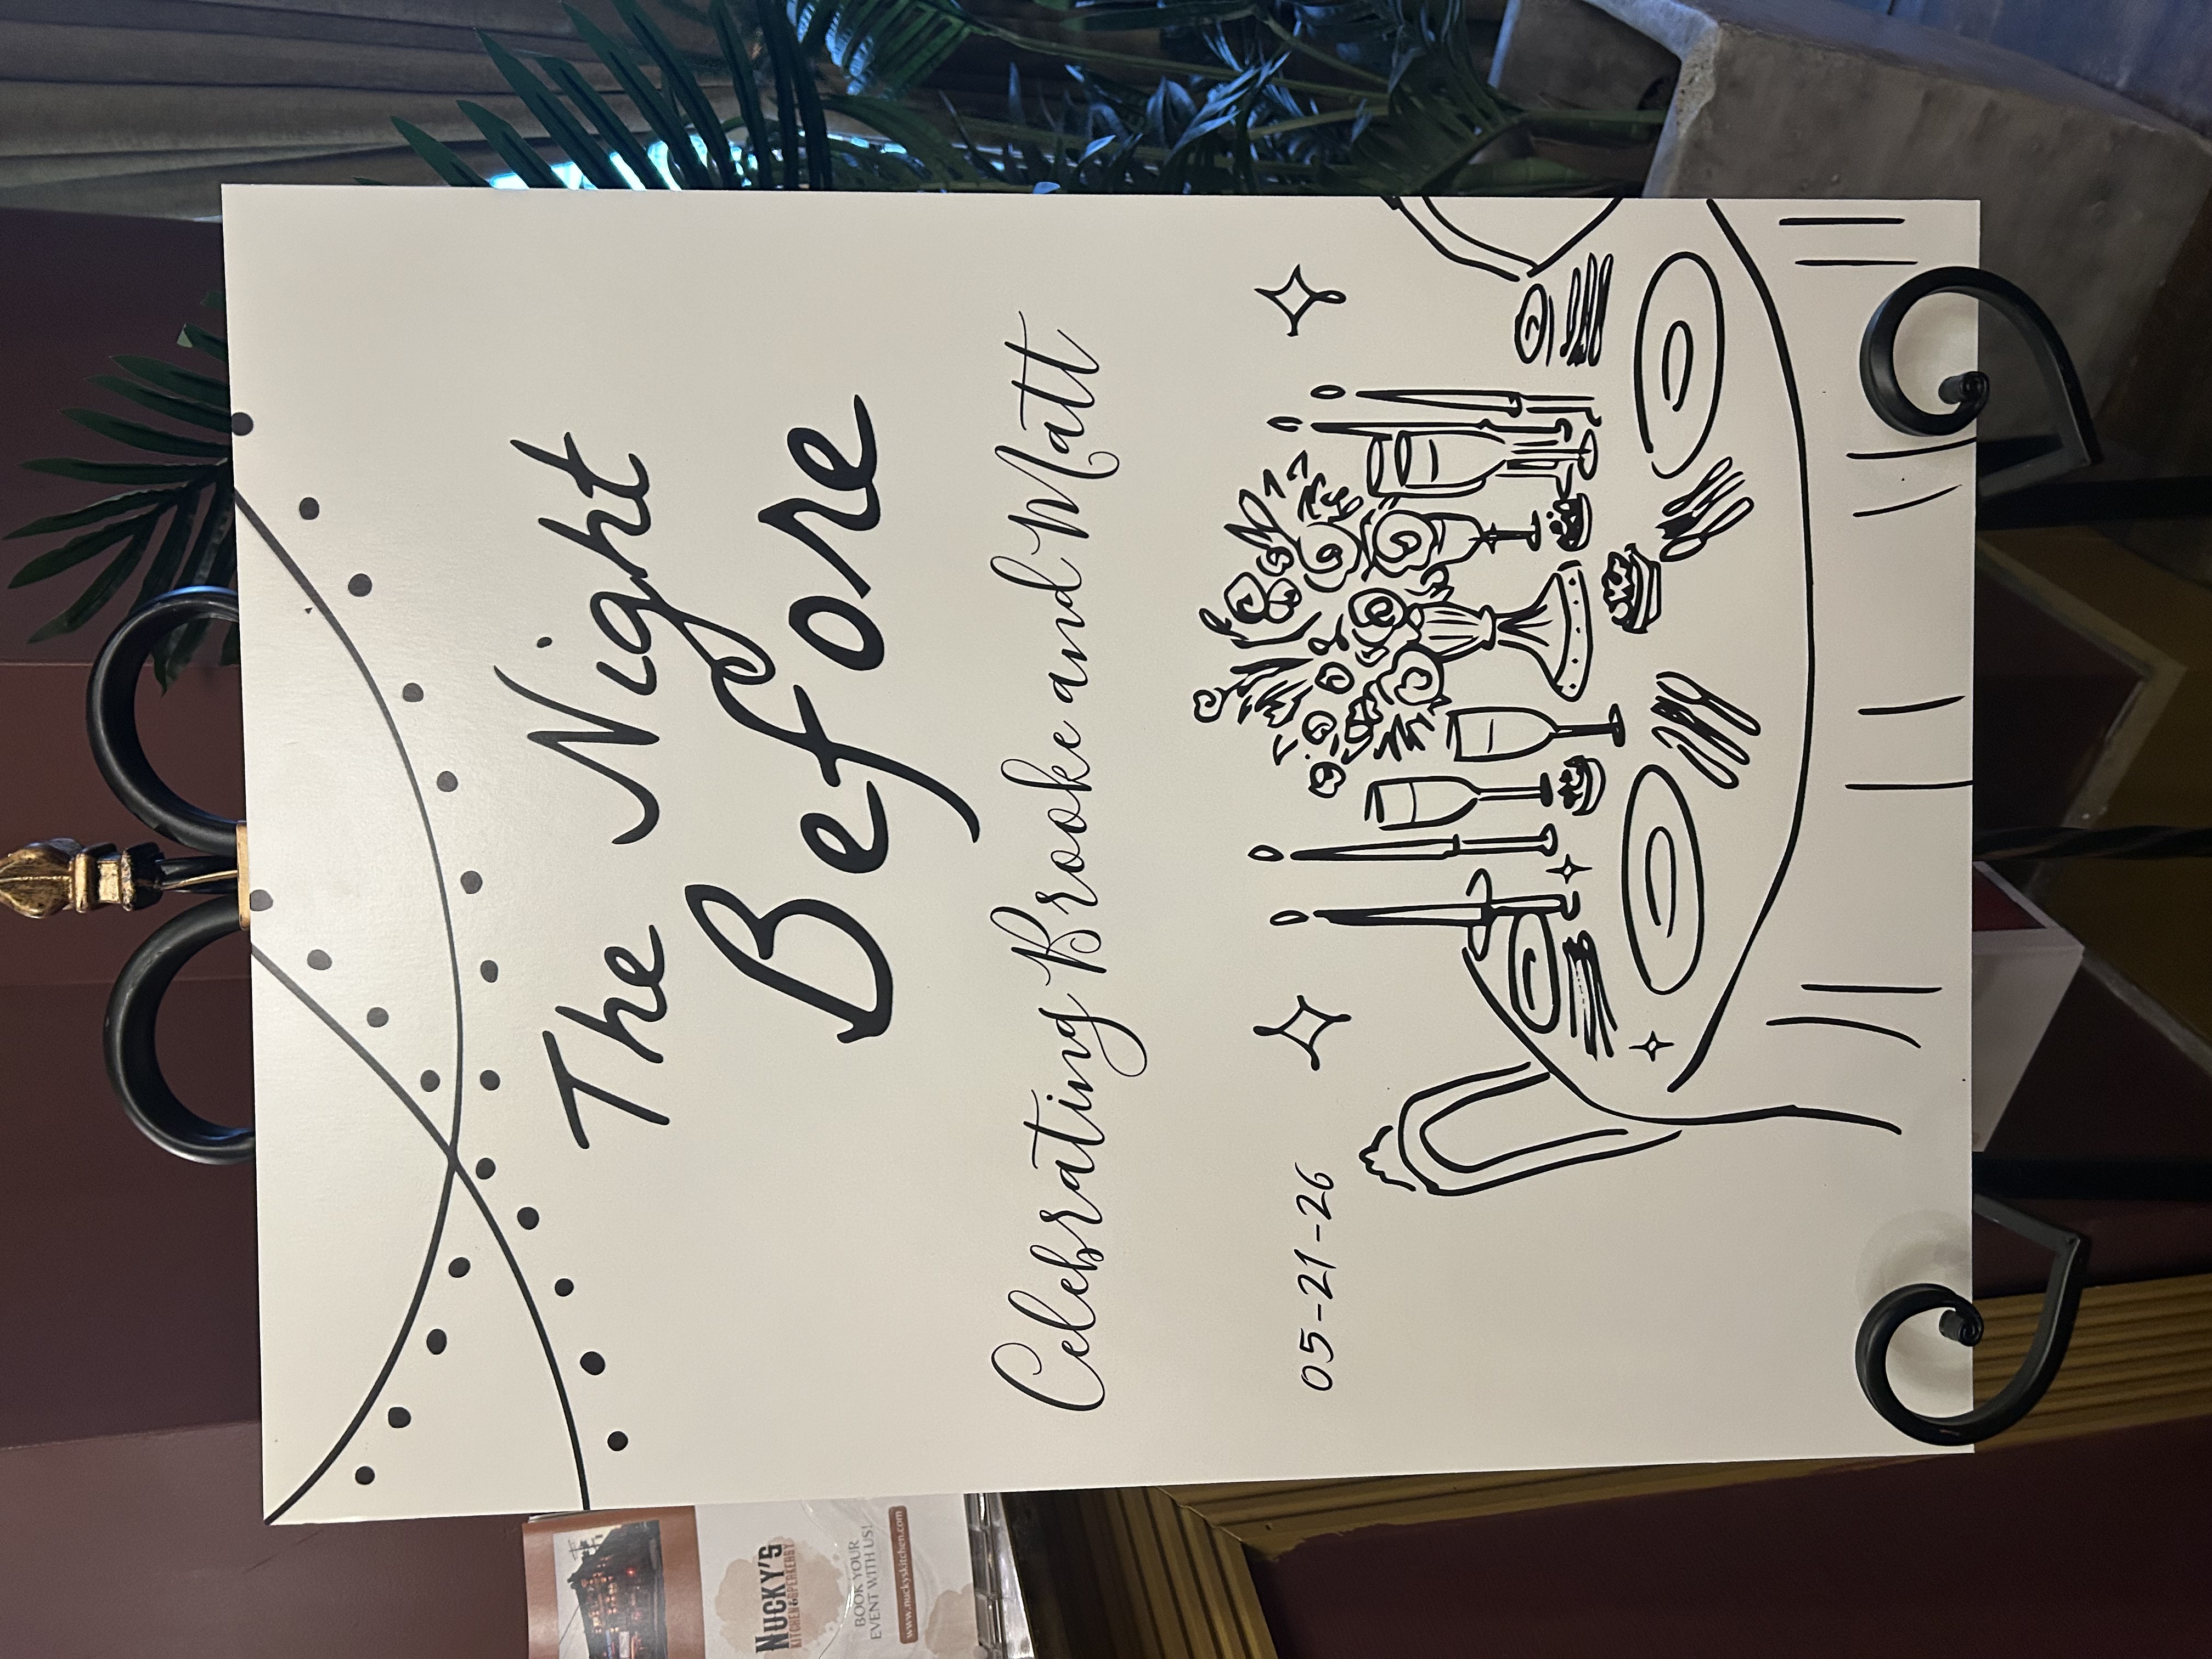 The Night
Before
Celebrating Brooke and Matt
05-21-26
NUCKY'S
KITCHEN & SPEAKEASY
BOOK YOUR
EVENT WITH US!
www.nuckyskitchen.com